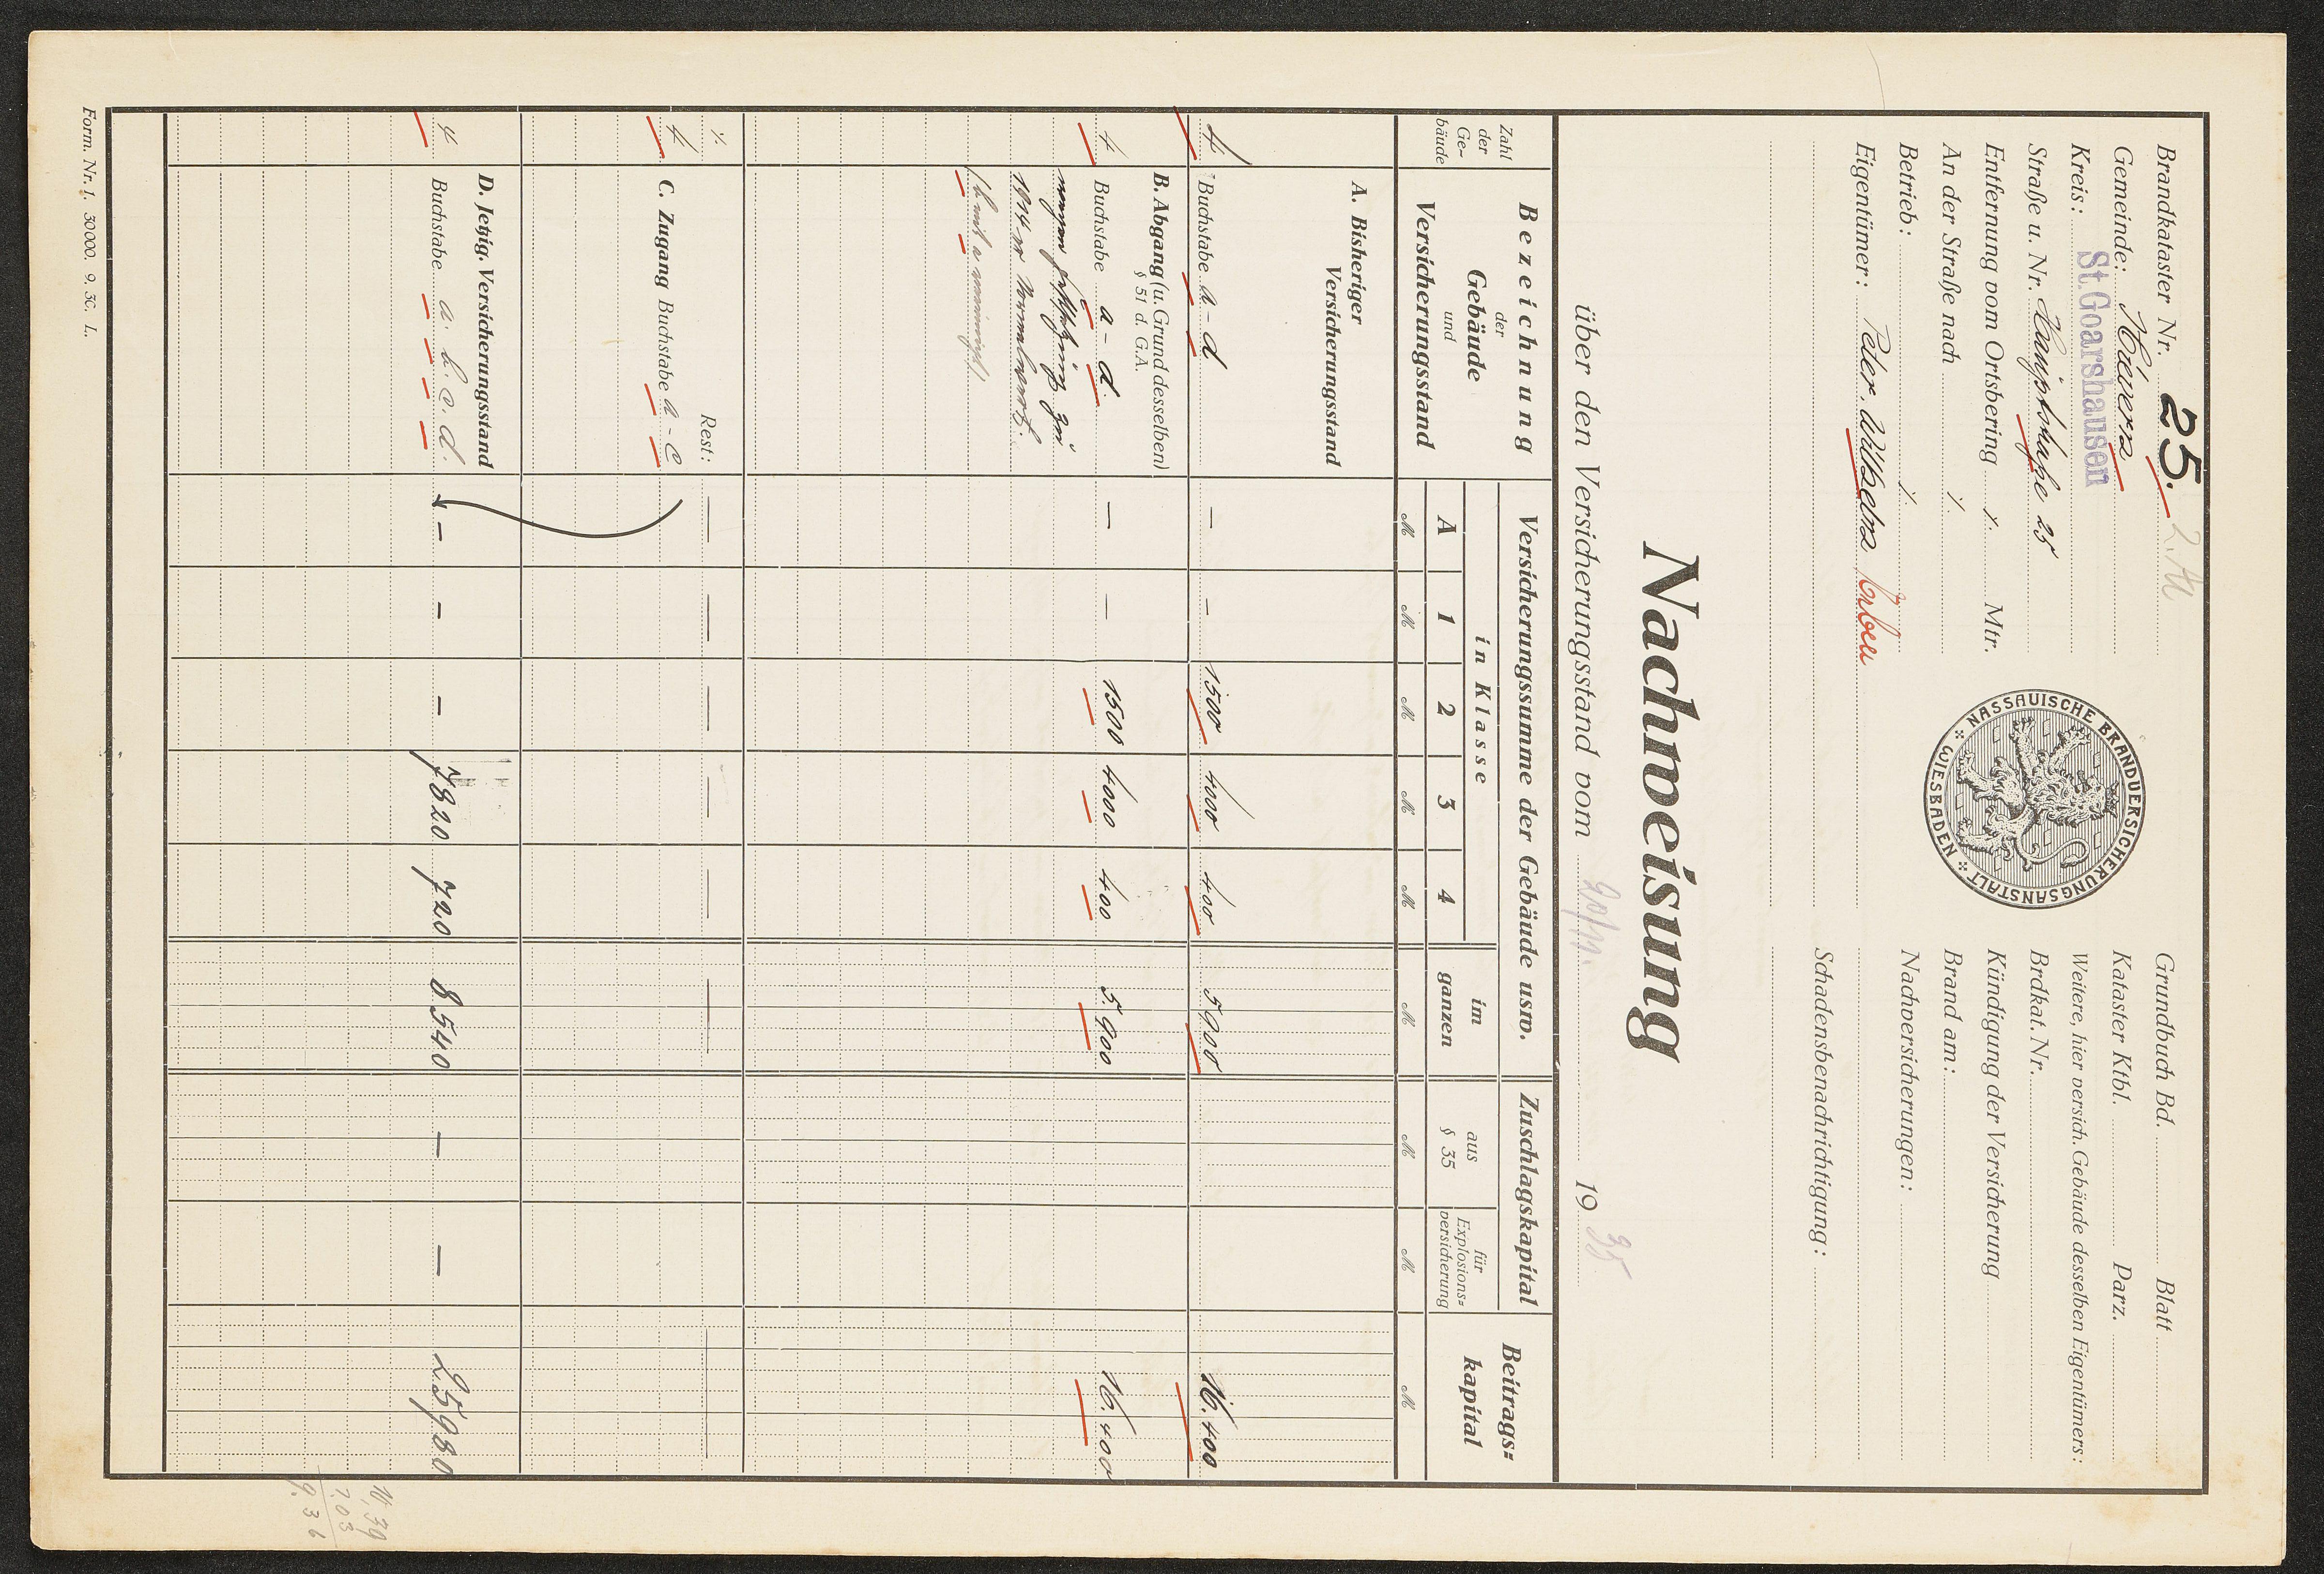 Brandkataster Nr. 25.
Gemeinde:
Kreis: St. Goarshausen
Straße u. Nr. Hauptstraße 25
Entfernung vom Ortsbering ./. Mtr.
An der Straße nach ./.
Betrieb: ./.
Eigentümer: Peter Wilhelm Erben
NASSAUISCHE BRANDVERSICHERUNGSANSTALT
WIESBADEN
Grundbuch Bd. Blatt
Kataster Ktbl. Parz.
Weitere, hier versich. Gebäude desselben Eigentümers:
Brdkat. Nr.
Kündigung der Versicherung
Brand am:
Nachversicherungen:
Schadensbenachrichtigung:
Nachweisung
über den Versicherungsstand vom 20/11. 19 35
Zahl der Ge-bäude
Bezeichnung
der
Gebäude
und
Versicherungsstand
Versicherungssumme der Gebäude usw.
in Klasse
A 1 2 3 4
im ganzen
Zuschlagskapital
aus § 35
für Explosions-versicherung
Beitrags-kapital
M M M M M M M M M
A. Bisheriger
Versicherungsstand
4 Buchstabe a - d — — 1500 4000 400 5900 16.400
B. Abgang (u. Grund desselben)
§ 51 d. G.A.
4 Buchstabe a - d. — — 1500 4000 400 5.900 16.400
wegen zu
1914-er
(b mit a vereinigt)
./. Rest: — — — — — — —
4 C. Zugang Buchstabe a - c
D. Jetzig. Versicherungsstand
4 Buchstabe a. b. c. d. — — — 7820 720 8540 — — 25980
7.03
9.36
Form. Nr. 1. 30000. 9. 30. L.